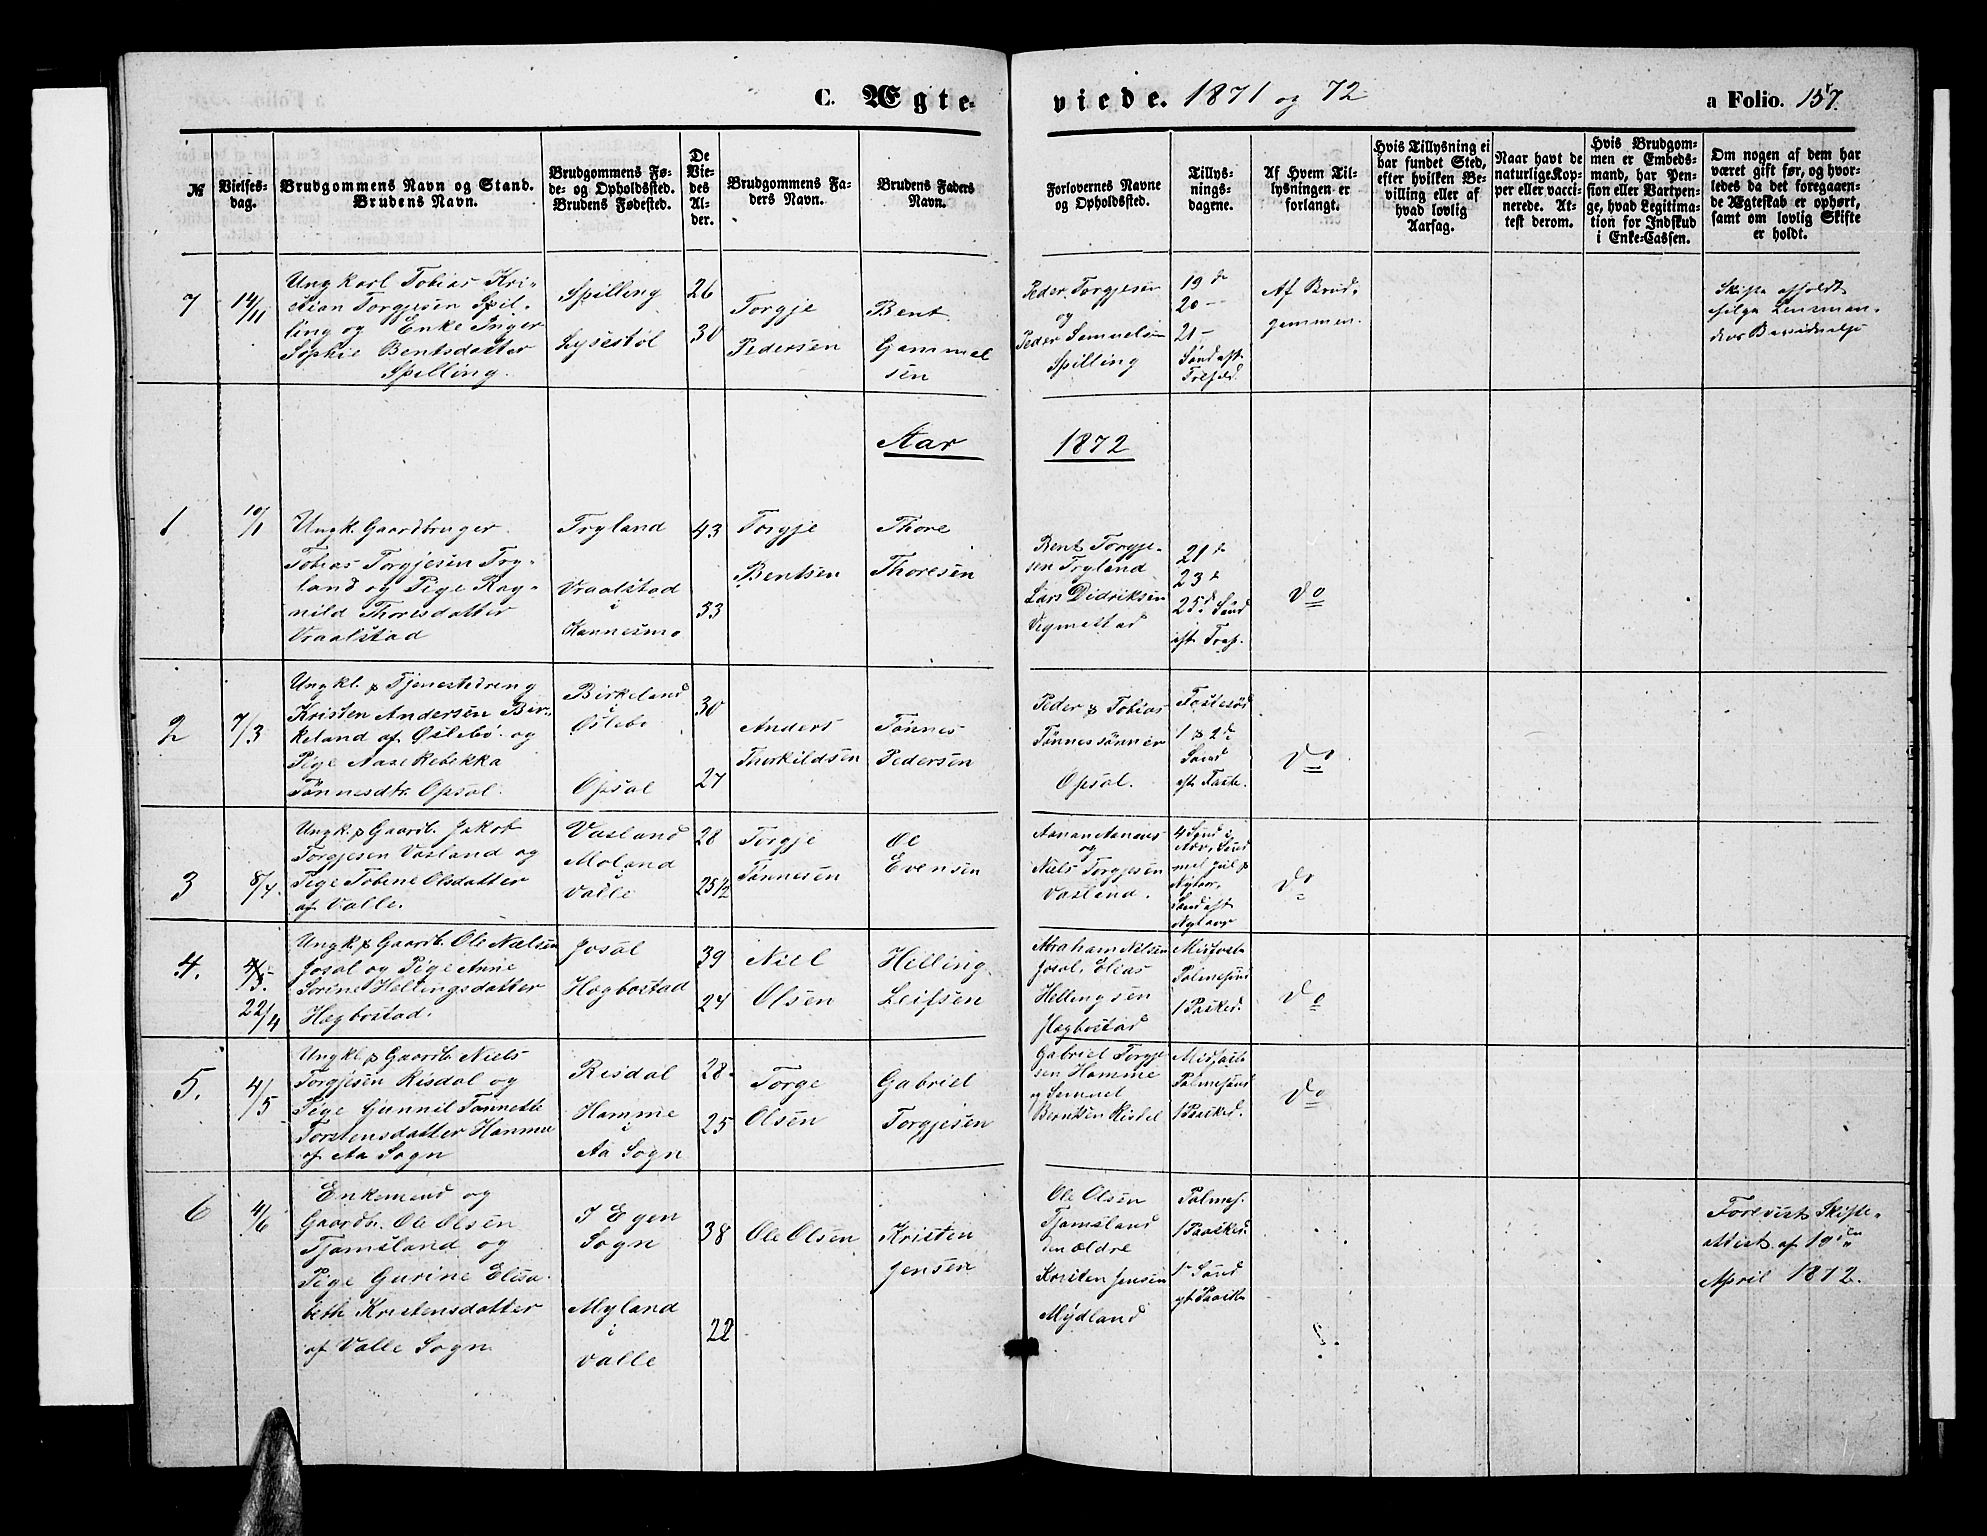 C. Ægte-
viede. 1871 og 72
a Folio. 157.
№
Vielses-
dag.
Brudgommens Navn og Stand.
Brudens Navn.
Brudgommens Fø-
de- og Opholdssted.
Brudens Fødested.
De
Vie-
des
Al-
der.
Brudgommens Fa-
ders Navn.
Brudens Faders
Navn.
Forlovernes Navne
og Opholdssted.
Tillys-
nings-
dagene.
Af Hvem Til-
lysningen er
forlangt.
Hvis Tillysning ei
har fundet Sted,
efter hvilken Be-
villing eller af
hvad lovlig
Aarsag.
Naar havt de
naturlige Kop-
per eller vacci-
nerede. At-
test derom.
Hvis Brudgom-
men er Embeds-
mand, har Pen-
sion eller Vartpen-
ge, hvad Legitima-
tion for Indskud
i Enke-Cassen.
Om nogen af dem har
været gift før, og hvor-
ledes da det foregaaen-
de Ægteskab er ophørt,
samt om lovlig Skifte
er holdt.
7
14/11
Ungkarl Tobias Kri-
stian Torgjesen Spil-
ling og Enke Inger
Sophie Bentsdatter
Spilling.
Spilling
Lysestøl
26
30
Torgje
Pedersen
Bent
Gammel
sen
Peder Torgjesen
og
Peder Samuelsen
Spilling
19de
20 —
21 —
Sønd. eft.
Trefold.
Af Brud-
gommen.
Skifte afholdt
ifølge Lensman-
dens Bevidnelse
Aar
1872
1
10/1
Ungk. Gaardbruger
Tobias Torgjesen Try-
land og Pige Rag-
nild Thoresdatter
Vraalstad
Tryland
Vraalstad
i
Hannesmo
43
33
Torgje
Bentsen
Thore
Thoresen
Bent Torgje-
sen Tryland
Lars Didriksen
Vigmostad
21de
23de
25de Sønd
eft. Tref.
Do
2
7/3
Ungkl. & Tjenestedreng
Kristen Andersen Bir-
keland af Øslebø og
Pige Aase Rebekka
Tønnesdtr. Opsal.
Birkeland
i
Øslebø
Opsal
30
27
Anders
Thorkildsen
Tønnes
Pedersen
Peder & Tobias
Tønnessønner
Opsal.
Fastesønd
1 & 2de
Sønd
eft. Faste.
Do
3
8/4.
Ungk. & Gaardb. Jakob
Torgjesen Vasland og
Pige Tobine Olsdatter
af Valle.
Vasland
Moland
i
Valle
28
25 1/2
Torgje
Tønnesen
Ole
Evensen
og
Niels Torgjesen
Vasland.
4 Sønd i
Adv., Sønd
mel Jul &
Nytaar,
Sønd eft
Nytaar
Do
4.
22/4
Ungk. & Gaardb. Ole Nielsen
Josal og Pige Anne
Serine Hellingsdatter
Hægbostad.
Josal
Hægbostad
39
24
Niel
Olsen
Helling
Leifsen
Abraham Nilsen
Josal, Elias
Hellingsen
Hægbostad
Midfaste
Palmesønd
1 Paasked.
Do
5.
4/5
Ungkl. & Gaardb. Niels
Torgjesen Risdal og
Pige Gunnil Tonnette
Torstensdatter Hamme
af Aa Sogn
Risdal
Hamme
i
Aa Sogn
28
25
Torge
Olsen
Gabriel
Torgjesen
Gabriel Torgje-
sen Hamme
og Samuel
Berntsen
Midfaste
Palmesønd
1 Paasked.
Do
6
4/6
Enkemand og
Gaardb. Ole Olsen
Tjomsland og
Pige Gurine Elisa-
beth Kristensdatter
af Valle Sogn
I Egen
Sogn
Myland
i
Valle
38
22
Ole Olsen
Kristen
Jensen
Ole Olsen
Tjomsland
den ældre
Kristen Jensen
Mydland
Palmes.
1 Paasked.
1ste Sønd
eft Paaske
Forevist Skifte-
attest af 19den
April 1872.